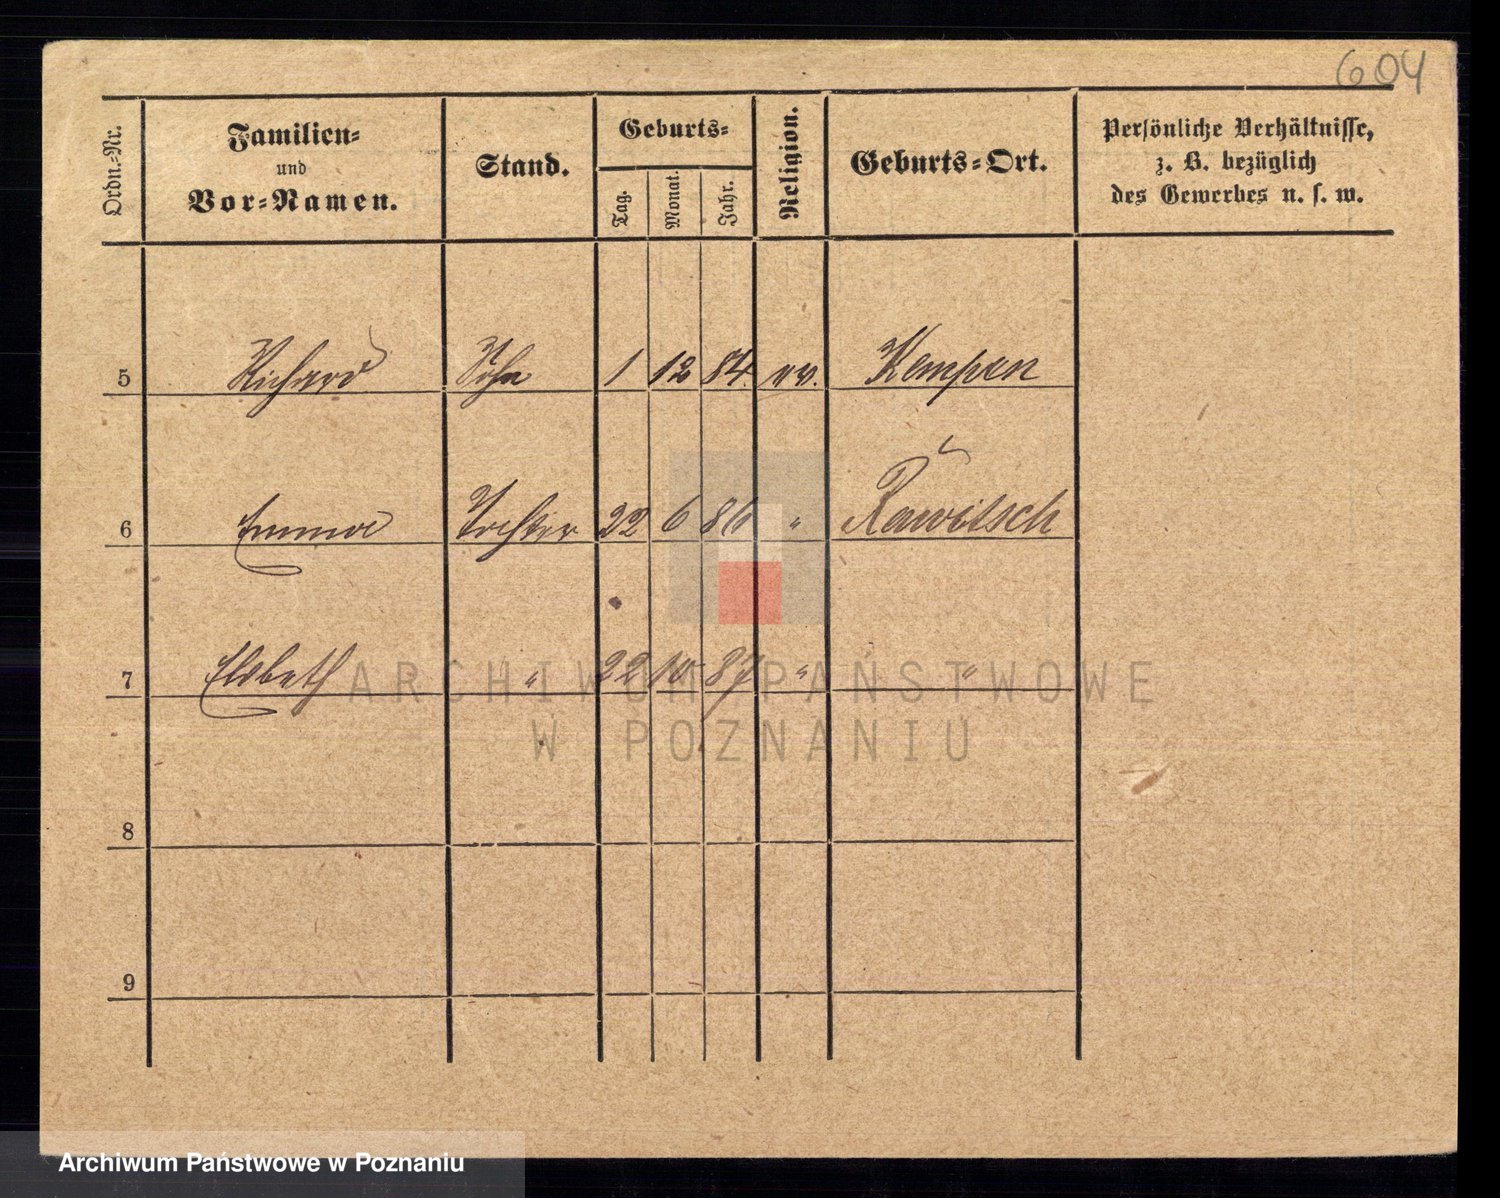 604
Ordn.-Nr.
Familien-
und
Vor-Namen.
Stand.
Geburts-
Tag.
Monat.
Jahr.
Religion.
Geburts-Ort.
Persönliche Verhältnisse,
z. B. bezüglich
des Gewerbes u. s. w.
5 Richard Sohn 1 12 84 ev. Kempen
6 Emma Tochter 22 6 86 " Rawitsch
7 Elsbeth " 22 10 87 " "
8
9
ARCHIWUM PAŃSTWOWE
W POZNANIU
Archiwum Państwowe w Poznaniu